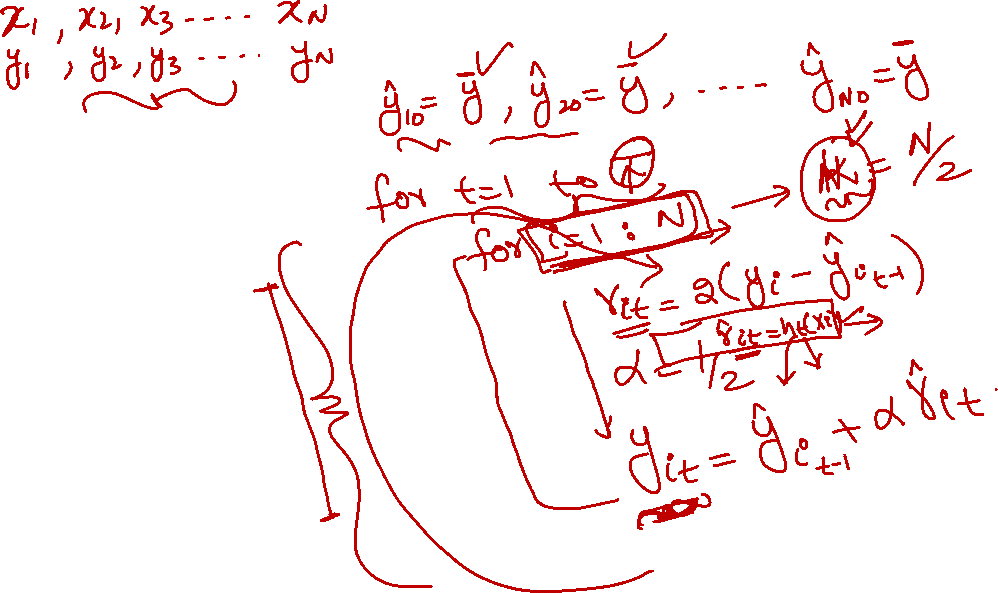 x₁, x₂, x₃ ----- x_N
y₁, y₂, y₃ ----- y_N
ŷ₁₀ = ȳ, ŷ₂₀ = ȳ, ----- ŷ_N0 = ȳ
for t=1 to T
for i=1 : N → K = N/2
r_it = 2(y_i - ŷ_i t-1)
r̂_it = h_t(x_i)
α = 1/2
y_it = ŷ_i t-1 + α r̂_it